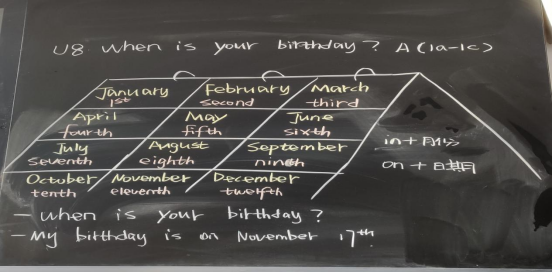 U8 When is your birthday? A (1a-1c)
January February March
1st second third
April May June
fourth fifth sixth
July August September
seventh eighth ninth
October November December
tenth eleventh twelfth
in + 月份
on + 日期
- When is your birthday?
- My birthday is on November 17th.